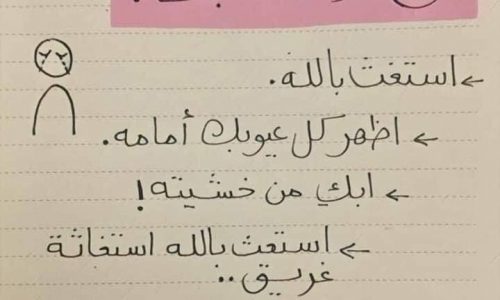 ← استغث بالله.
← اظهر كل عيوبك أمامه.
← ابكِ من خشيته!
← استغث بالله استغاثة
غريق..